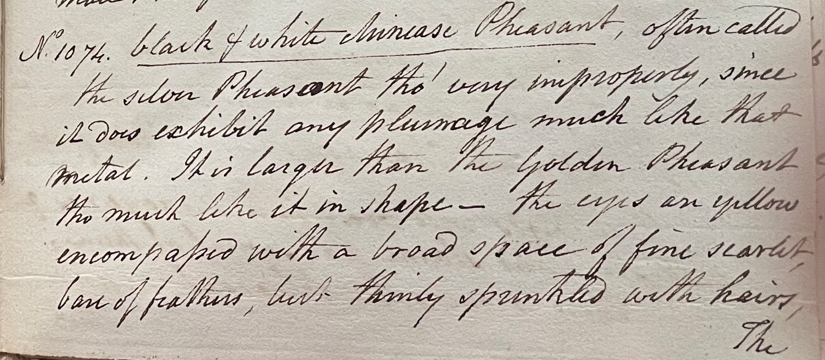 No. 1074. black & white chinease Pheasant, often called
the silver Pheasant tho' very improperly, since
it does exhibit any plumage much like that
metal. It is larger than the Golden Pheasant
tho much like it in shape — the eyes are yellow
encompassed with a broad space of fine scarlet,
bare of feathers, but thinly sprinkled with hairs,
The